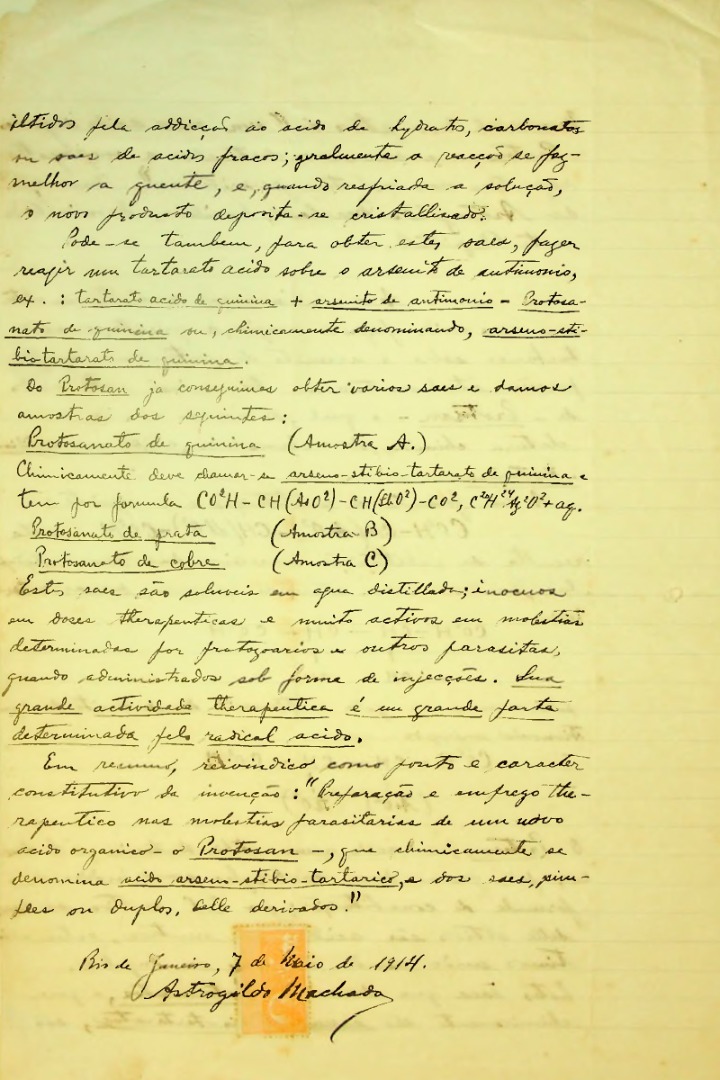 obtidos pela addicção ao acido de hydratos, carbonatos
ou saes de acidos fracos; geralmente a reacção se faz
melhor a quente, e, quando resfriada a solução,
o novo producto deposita-se cristallisado.
Pode-se tambem, para obter estes saes, fazer
reagir um tartarato acido sobre o arsenito de antimonio,
ex.: tartarato acido de quinina + arsenito de antimonio = Protosa-
nato de quinina ou, chimicamente denominando, arseno-sti-
bio-tartarato de quinina.
Do Protosan já conseguimos obter varios saes e damos
amostras dos seguintes:
Protosanato de quinina (Amostra A.)
Chimicamente deve chamar-se arseno-stibio-tartarato de quinina e
tem por formula CO²H-CH(AsO²)-CH(SbO²)-CO², C²⁰H²⁴Az²O²+aq.
Protosanato de prata (Amostra B)
Protosanato de cobre (Amostra C)
Estes saes são soluveis em agua distillada; inocuos
em doses therapeuticas e muito activos em molestias
determinadas por protozoarios e outros parasitas,
quando administrados sob forma de injecções. Sua
grande actividade therapeutica é em grande parte
determinada pelo radical acido.
Em resumo, reivindico como ponto e caracter
constitutivo da invenção: "Preparação e emprego the-
rapeutico nas molestias parasitarias de um novo
acido organico - o Protosan -, que chimicamente se
denomina acido arseno-stibio-tartarico, e dos saes, sim-
ples ou duplos, delle derivados."
Rio de Janeiro, 7 de Maio de 1914.
Astrogildo Machado